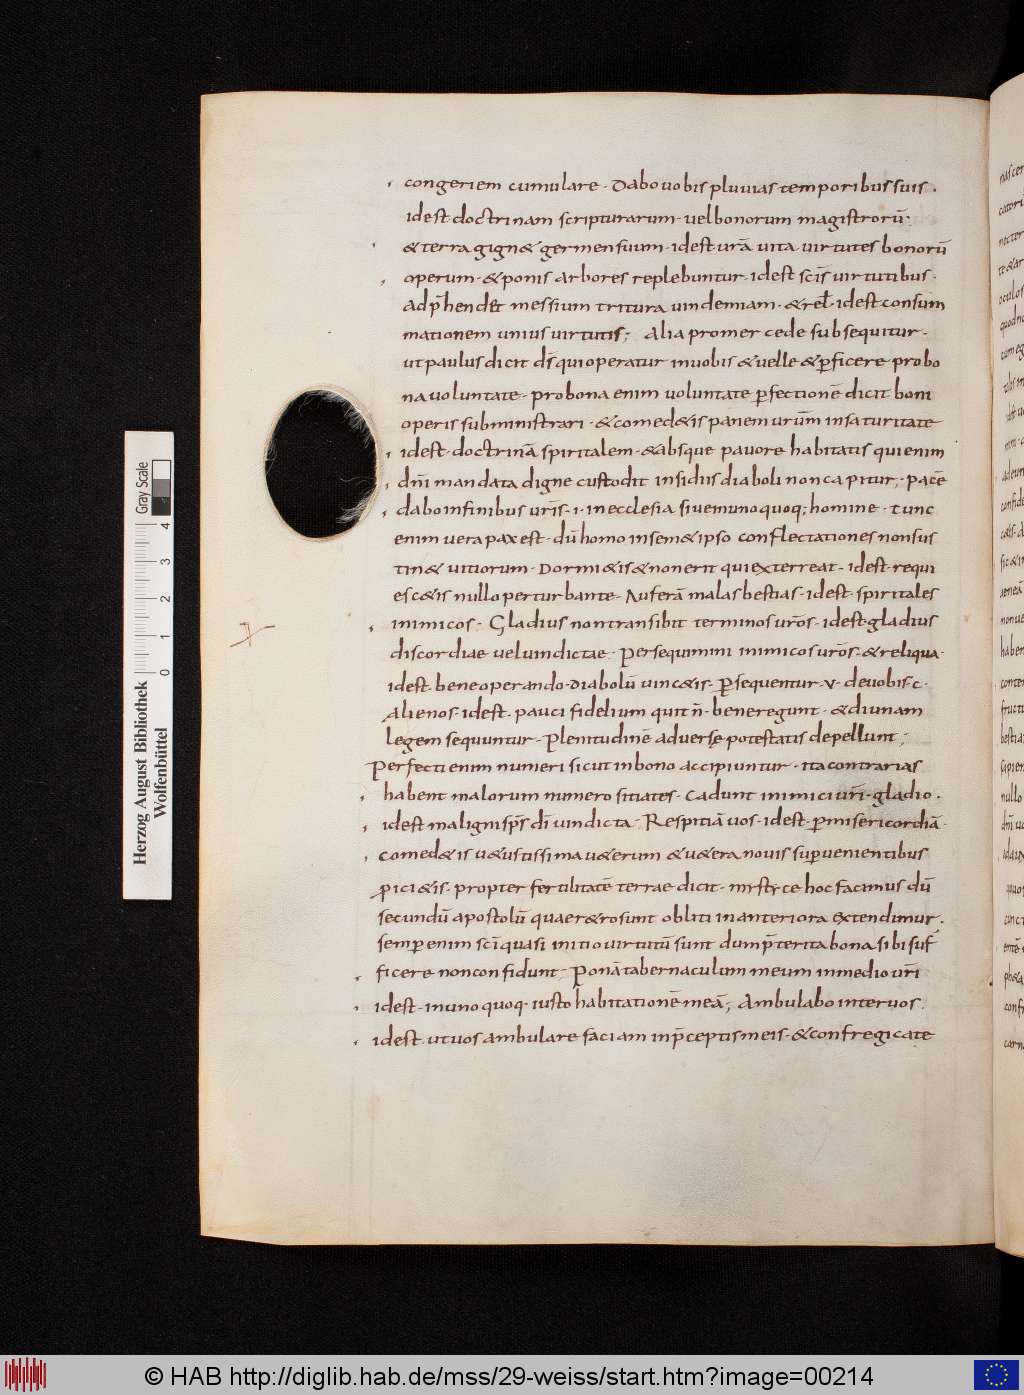 congeriem cumulare · Dabo uobis pluuias temporibus suis ·
idest doctrinam scripturarum · uel bonorum magistrorū ·
& terra gign& germen suum · idest urā uita uirtutes bonorū
operum · & pomis arbores replebuntur · idest scis̄ uirtutibus ·
adp̄hendet messium tritura uindemiam · & rel̄ · idest consum
mationem unius uirtutis; Alia promercede subsequitur ·
ut paulus dicit ds̄ qui operatur inuobis & uelle & ꝑficere probo
na uoluntate · pro bona enim uoluntate ꝑfectionē dicit boni
operis subministrari · & comed&is panem urūm insaturitate
idest · doctrinā spiritalem · & absque pauore habitatis qui enim
dnī mandata digne custodit insidiis diaboli non capitur; pacē
dabo infinibus urīs · i · inecclesia siue in uno quoq; homine · tunc
enim uera pax est · dū homo insem&ipso conflectationes non sus
tin& uitiorum · Dormi&is & non erit qui exterreat · idest · requi
esc&is nullo perturbante · Auferā malas bestias · idest · spiritales
inimicos · Gladius non transibit terminos urōs · idest gladius
discordiae uel uindictae · Persequimini inimicos urōs · & reliqua ·
idest · bene operando · diabolū uinc&is · ꝑsequentur · v · de uobis · c ·
Alienos · idest · pauci fidelium qui tn̄ · bene regunt · & diuinam
legem sequuntur · Plenitudinē aduerse potestatis depellunt;
Perfecti enim numeri sicut inbono accipiuntur · ita contrarias
habent malorum numerositates · Cadunt inimici urī · gladio ·
idest maligni sps̄ dī uindicta · Respitiā uos · idest · ꝑ misericordiā ·
comed&is u&ustissima u&erum & u&era nouis suꝑuenientibus
ꝓici&is · propter fertilitatē terrae dicit · hoc facimus dū
secundū apostolū quae r&ro sunt obliti inanteriora extendimur ·
semꝑ enim scī quasi initio uirtutū sunt dum p̄terita bona sibi suf
ficere non confidunt; Ponā tabernaculum meum inmedio urī
idest · inuno quoq · iusto habitationē meā; Ambulabo inter uos ·
idest ut uos ambulare faciam inp̄ceptis meis · & confregi cate
Herzog August Bibliothek
Wolfenbüttel
0 1 2 3 4
Gray Scale
© HAB http://diglib.hab.de/mss/29-weiss/start.htm?image=00214